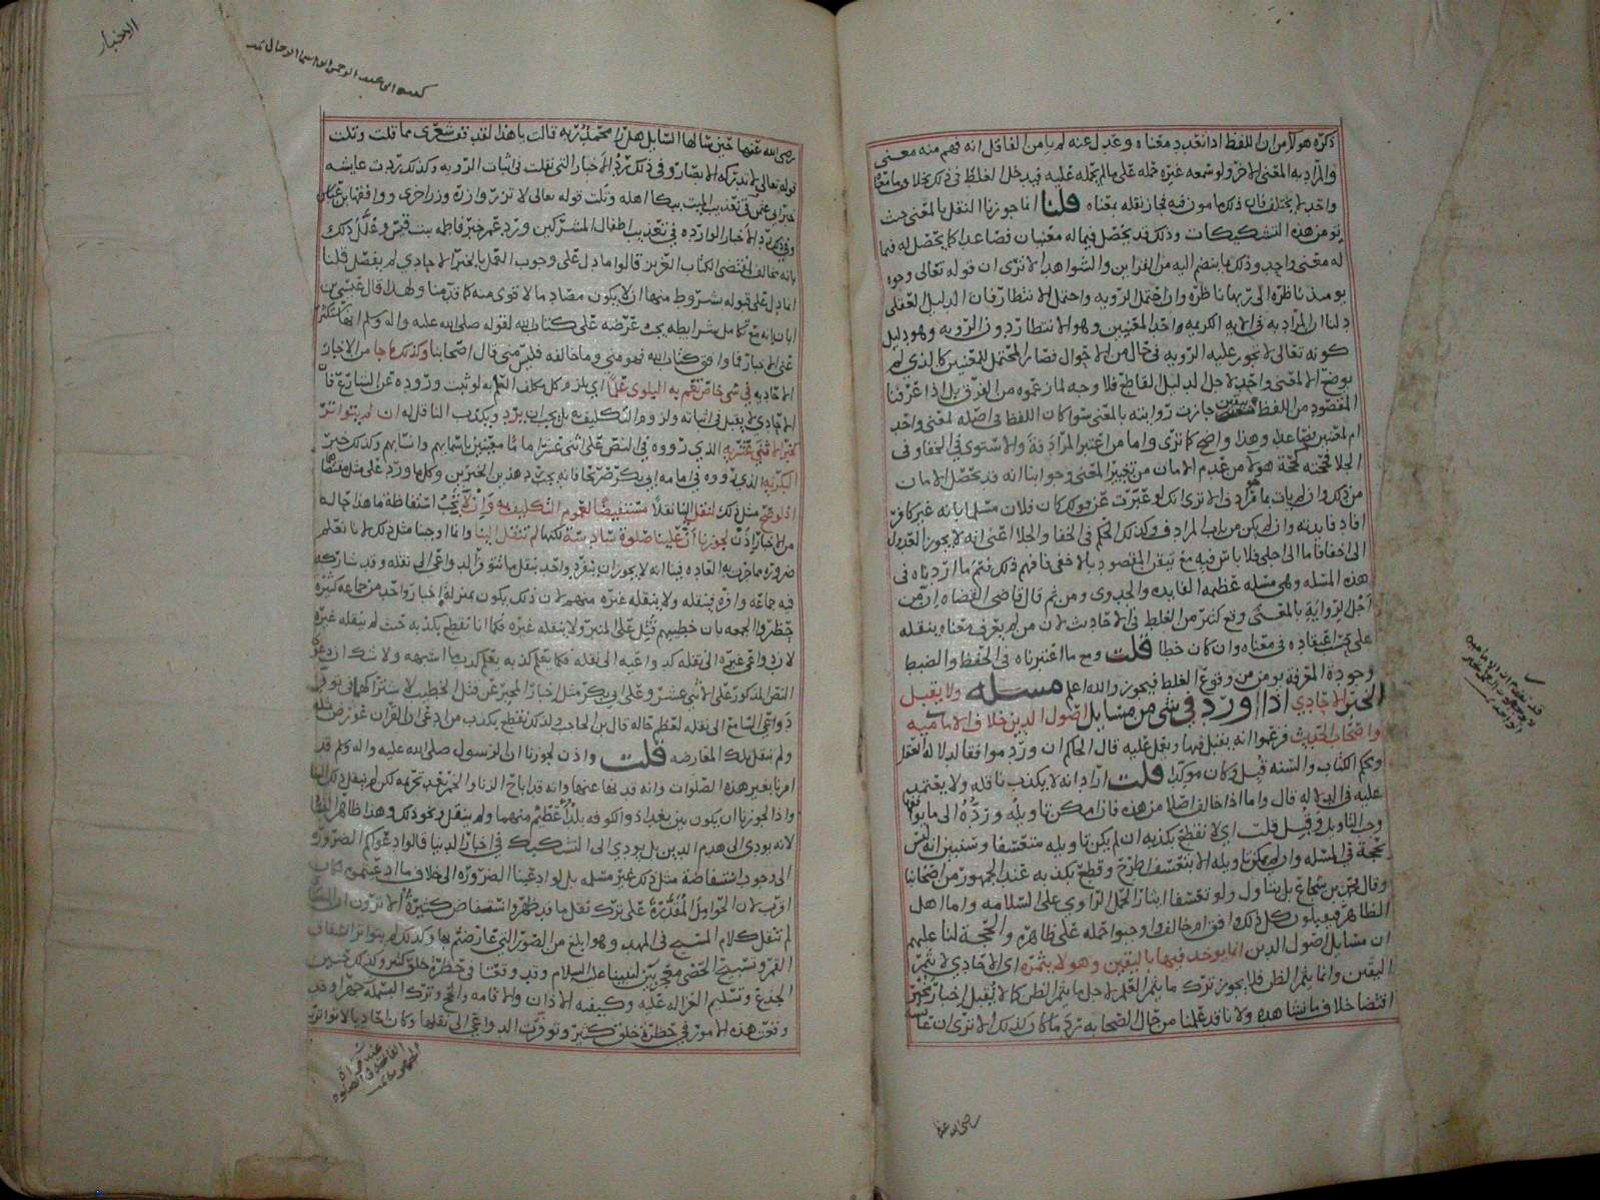 ذكره هولا من ان اللفظ اذا تعبد بمعناه وعدل عنه لم يامن الغافل انه فهم منه معنى
والمراد به المعنى الاخر ولو سمعه غيره حمله على مالم يحمله عليه فيدخل الغلط في ذلك بخلاف ما معناه
واحد لا يختلف فان ذلك مامون فيه فجاز نقله بمعناه قلنا انا جوزنا النقل بالمعنى حيث
يومن هذه التشكيكات وذلك قد يحصل فيما له معنيان فصاعدا كما يحصل له فيما
له معنى واحد وذلك بما ينضم اليه من القراين والشواهد الا ترى ان قوله تعالى وجوه
يومئذ ناظره الى ربها ناظره وان احتمل الرويه واحتمل الانتظار فان الدليل العقلي
دلنا ان المراد به في الايه الكريمه واحد المعنيين وهو الانتظار دون الرويه وهو دليل
كونه تعالى لا تجوز عليه الرويه في حال من الاحوال فصار المحتمل للمعنيين كالذي لم
يوضع الا لمعنى واحد لاجل الدليل القاطع فلا وجه لما زعموه من الفرق بل اذا عرفنا
المقصود من اللفظ بيقين جازت روايته بالمعنى سوا كان اللفظ في اصله لمعنى واحد
ام لمعنيين فصاعدا وهذا واضح كما ترى واما من اعتبر المرادفة والاستوى في الخفا وفي
الجلا فحجته كحجة هولا من عدم الامان من تغيير المعنى وجوابنا انه قد يحصل الامان
من ذلك وان لم يات بمرادف الا ترى انك لو عبرت عن قولك كان فلان مسلما بانه غير كافر
افاد فايدته وان لم يكن من باب المرادف وكذلك الحكم في الخفا والجلا اعني انه لا يجوز العدول
الى اخفا فاما الى اجلى فلا باس فيه مع تيقن المقصود بالاخفى فافهم ذلك فتم ما اردناه في
هذه المسله وهي مسله عظيمه الفايده والجدوى ومن ثم قال قاضي القضاه ان من
اجل الرواية بالمعنى وقع كثير من الغلط في الاحاديث لان من لم يعرف معناه ينقله
على حسب اعتقاده في معناه وان كان خطا قلت ومع ما اعتبرناه في الحفظ والضبط
وجودة المعرفه يومن من وقوع الغلط فيجوز والله اعلم مسله ولا يقبل
الخبر الاحادي اذا ورد في شي من مسايل اصول الدين خلاف الاماميه
واصحاب الحديث فزعموا انه يقبل فيها ويعمل عليه قال الحاكم ان ورد موافقا لدلالة العقل
ومحكم الكتاب والسنه قبل وكان موكدا قلت اراد انه لا يكذب ناقله ولا يعتمد
عليه في الدلاله قال واما اذا خالف اصلا من هذه فان امكن تاويله ورده الى ما يوافق
وجب التاويل وقبل قلت اي لا نقطع بكذبه ان لم يكن تاويله متعسفا وسنبين انه ليس
بحجة في المسله وان لم يمكن تاويله الا بتعسف اطرح وقطع بكذبه عند الجمهور من اصحابنا
وقال محمد بن شجاع بل يتاول ولو تعسفا ايثارا لحمل الراوي على السلامه واما اهل
الظاهر فيقبلون كل ذلك وافق ام خالف واوجبوا حمله على ظاهره والحجة لنا عليهم
ان مسايل اصول الدين انما يوخذ فيها باليقين وهو لا يثمره اي الاحادي لا يثمر
اليقين وانما يثمر الظن فلا يجوز ترك ما يثمر العلم لاجل ما يثمر الظن كما لا يقبل اخبار مخبر
اقتضا خلاف ما نشاهده ولانا قد علمنا من حال الصحابه رد ما كان كذلك الا ترى ان عايشه
رضي الله عنها
الاخبار
رضى الله عنها حين سالها السايل هل راى محمد ربه قالت يا هذا لقد قف شعري مما قلت وتلت
قوله تعالى لا تدركه الابصار وفي ذلك رد الاخبار التي نقلت في اثبات الرويه وكذلك ردت عايشه
خبر ابن عمر في تعذيب الميت ببكا اهله وتلت قوله تعالى لا تزر وازرة وزر اخرى ووافقها ابن عباس
وفي ذلك رد الاخبار الوارده في تعذيب اطفال المشركين ورد عمر خبر فاطمه بنت قيس وعلل ذلك
بانه مخالف لمقتضى الكتاب العزيز قالوا ما دل على وجوب العمل بالخبر الاحادي لم يفصل قلنا
انما دل على قبوله بشروط منها ان لا يكون مصادما لاقوى منه كما قدمنا ولهذا قال عيسى بن
ابان انه مع تكامل شرايطه يجب عرضه على كتاب الله لقوله صلى الله عليه واله وسلم انها ستكثر
عني الاخبار فما وافق كتاب الله فهو مني وما خالفه فليس مني قال اصحابنا وكذلك ما جا من الاخبار
الاحاديه في شي خاص تعم به البلوى علما اي يلزم كل مكلف العلم به لو ثبت وروده عن الشارع فان
الاحادي لا يقبل في اثباته ولزوم التكليف به بل يجب ان يرد ويكذب الناقل له ان لم يتواتر
كخبر الاثني عشريه الذي رووه في النص على اثنى عشر اماما معينين باسمايهم وانسابهم وكذلك خبر
البكريه الذي رووه في امامه ابي بكر صريحا فانه يجب رد هذين الخبرين وكلما ورد على مثلهما
اذ لو صح مثل ذلك لنقل الينا نقلا مستفيضا لعموم التكليف به وان لا تجب استفاضة ما هذا حاله
من الاخبار اذن لجوزنا ان علينا صلوة سادسة لكنها لم تنقل الينا وانما اوجبنا مثل ذلك لانا نعلم
ضرورة مما جرت به العاده فينا انه لا يجوز ان ينفرد واحد بنقل ما تتوفر الدواعي الى نقله وقد شاركه
فيه جماعه وافره فينقله ولا ينقله غيره منهم لان ذلك يكون بمنزلة اخبار واحد من جماعه كثيره
حضروا الجمعه بان خطيبهم قتل على المنبر ولا ينقله غيره فكما انا نقطع بكذبه حيث لم ينقله غيره
لان دواعي غيره الى نقله كدواعيه الى نقله فكما نعلم كذبه نعلم كذب ما اشبهه ولا شك ان دعوى
النص المذكور على الاثني عشر وعلى ابي بكر مثل اخبار المخبر عن قتل الخطيب لاشتراكهما في توفر
دواعي السامع الى نقله لعظم حاله قال ابن الحاجب ولذلك نقطع بكذب من ادعى ان القران عورض
ولم ينقل تلك المعارضه قلت واذن لجوزنا ان الرسول صلى الله عليه واله وسلم قد
امرنا بغير هذه الصلوات وانه قد نهانا عنها وانه قد اباح الزنا والخمر بعد تحريمه لكن لم ينقل ذلك الينا
واذا لجوزنا ان يكون بين بغداذ والكوفه بلدا اعظم منهما ولم ينقل ونحو ذلك وهذا ظاهر
لانه يودي الى هدم الدين بل يودي الى التشكيك في اخبار الدنيا قالوا دعواكم الضروره
الى وجوب استفاضة مثل ذلك غير مسلمه بل لو ادعينا الضروره الى خلاف ما ادعيتم
اقرب لان الحوامل المقدرة على ترك نقل ما قد ظهر واستفاض كثيرة الا ترون ان
لم تنقل كلام المسيح في المهد وهو ابلغ من الصور التي عارضتم بها وكذلك لم يتواتر انشقاق
القمر وتسبيح الحصى معجزتين لنبينا عليه السلام وقد وقعتا في حضرة خلق كثير وكذلك حنين
الجذع وتسليم الغزاله عليه وكيفيه الاذان والاقامه والحج وترك البسمله جهرا وقد
وقعت هذه الامور في حضرة خلق كثير وتوفرت الدواعي الى نقلها وكان احاديا لا تواتر